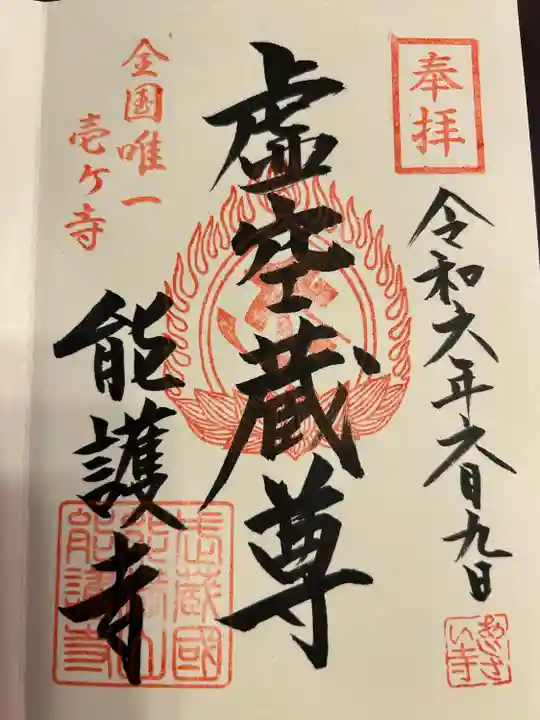 奉拝
令和六年六月九日
あじさい寺
虚空蔵尊
全国唯一
壱ケ寺
能護寺
武蔵國
能護寺